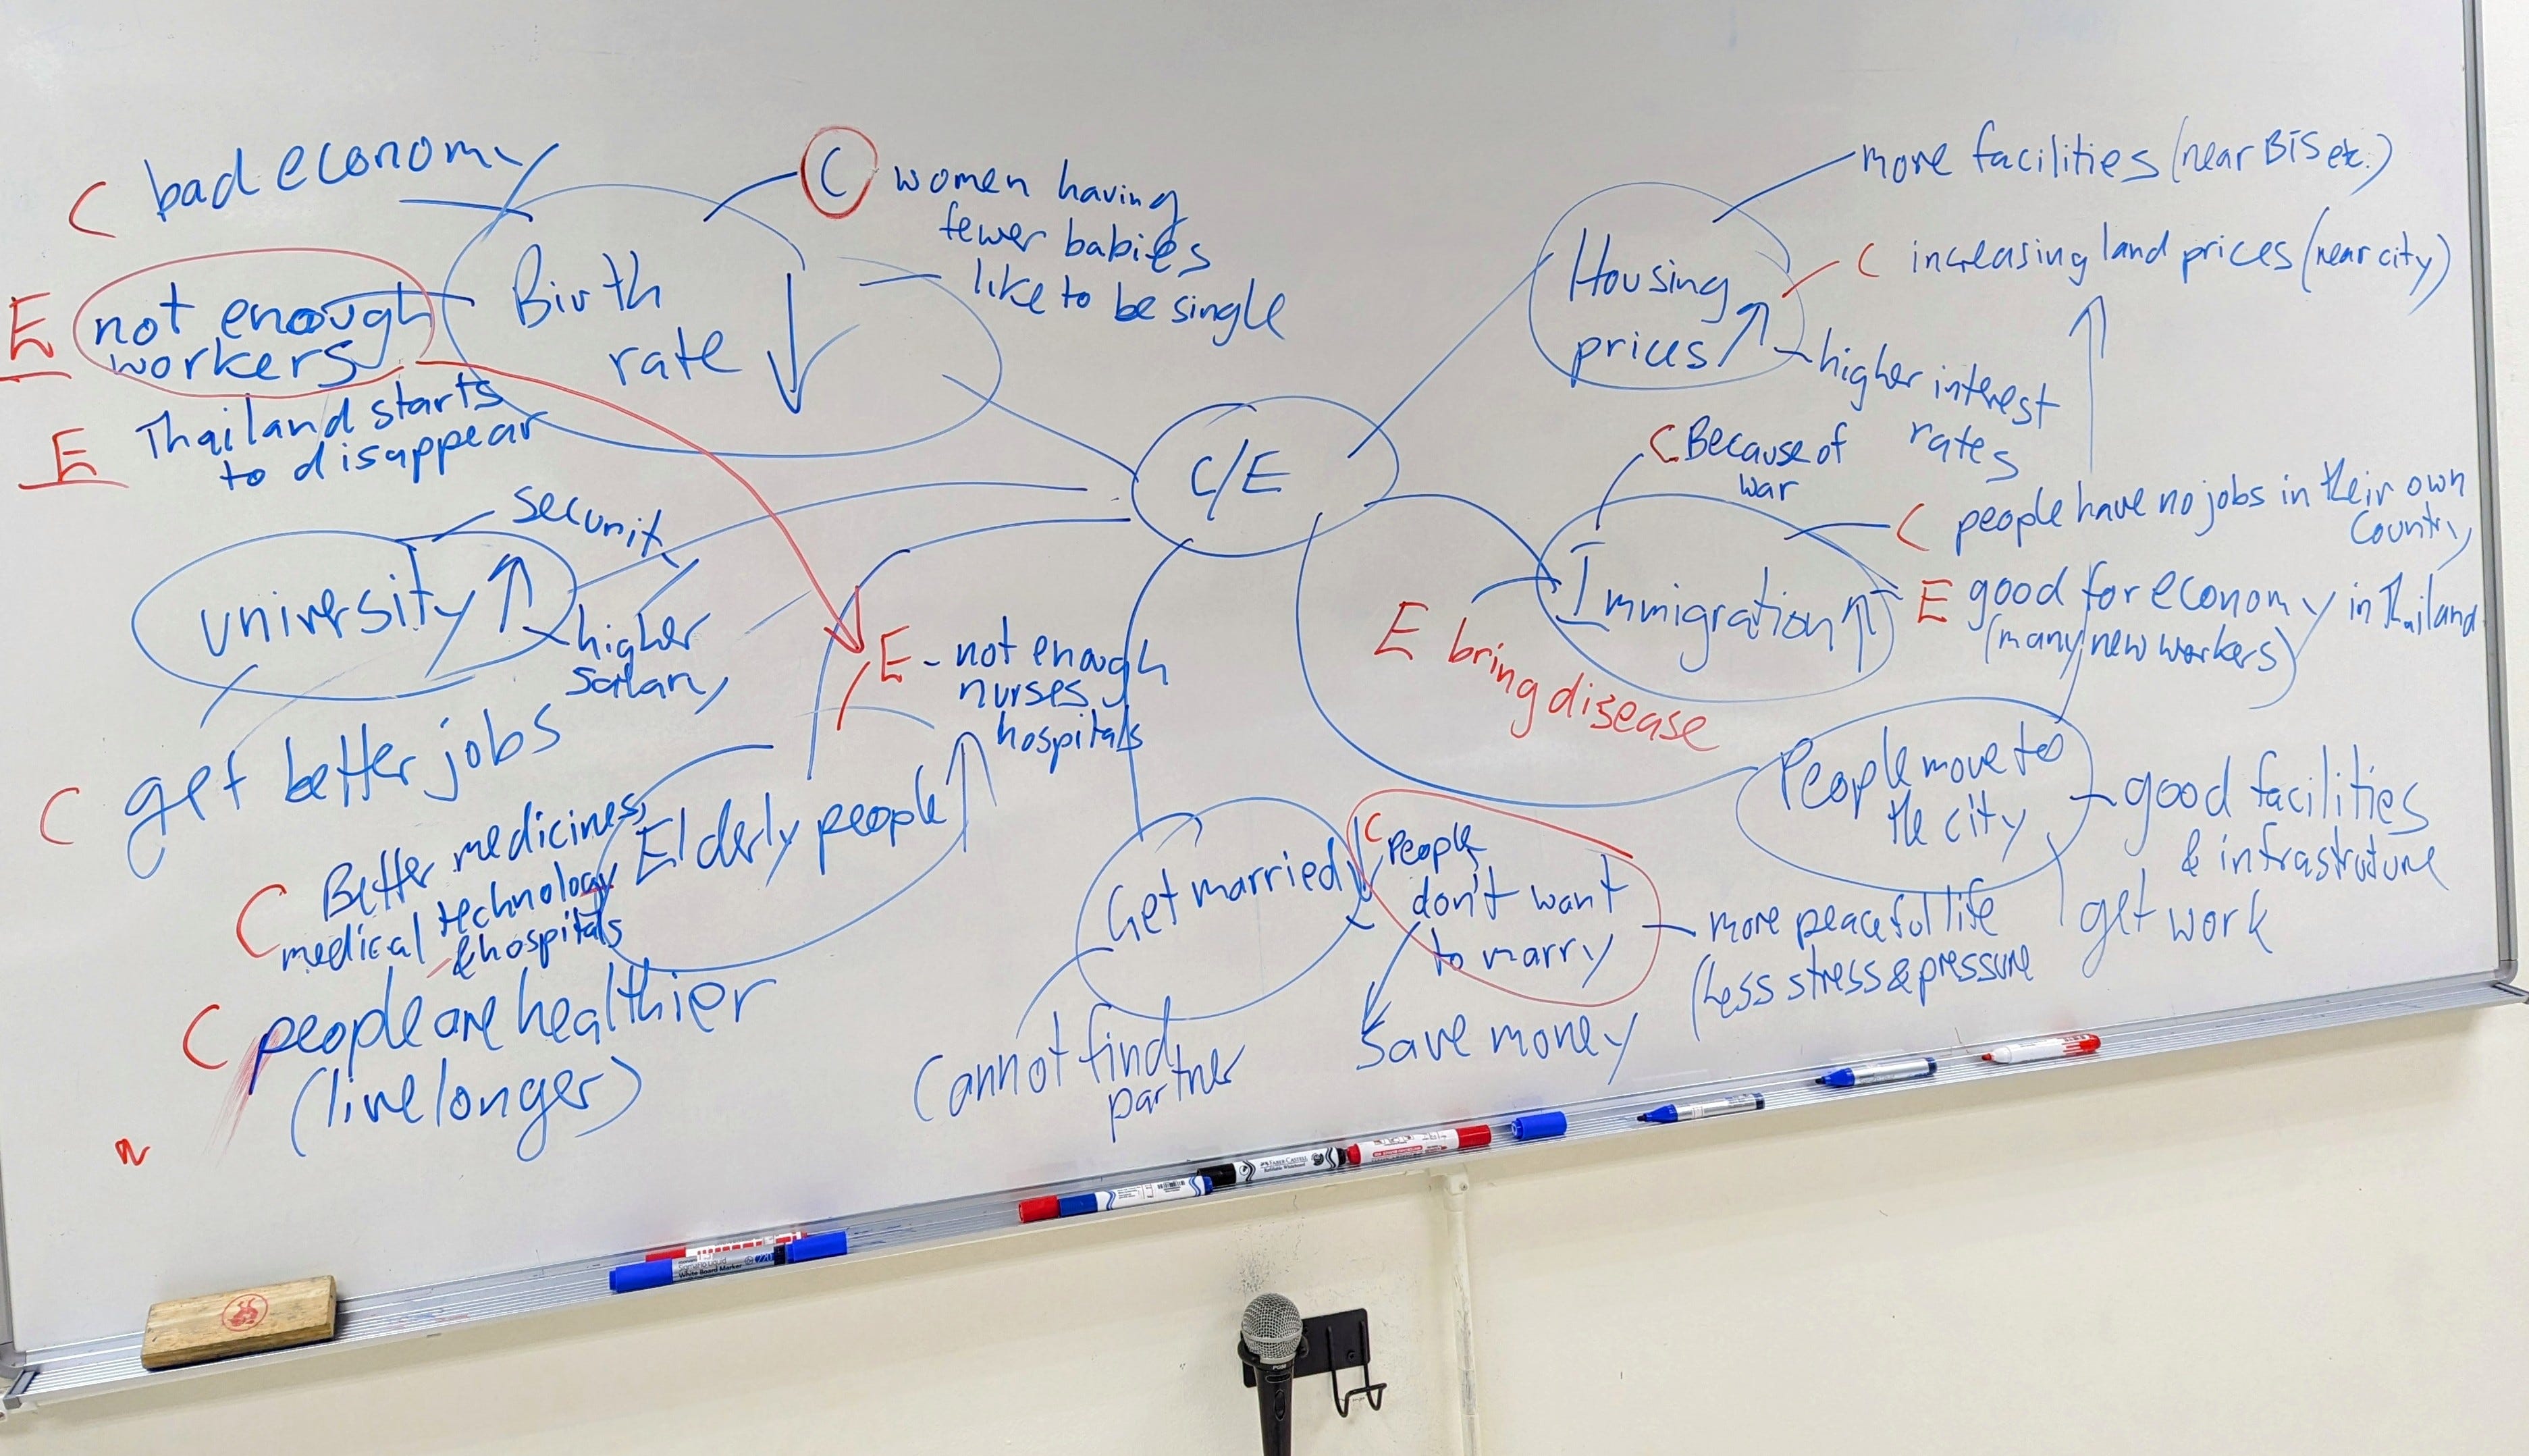 C bad economy
E not enough
workers
E Thailand starts
to disappear
Birth
rate ↓
C women having
fewer babies
like to be single
C/E
Housing
prices ↑
more facilities (near BTS etc.)
C increasing land prices (near city)
higher interest
rates
C Because of
war
Immigration ↑
C people have no jobs in their own
Country
E good for economy in Thailand
(many new workers)
E bring disease
university ↑
security
higher
salary
C get better jobs
E - not enough
nurses
hospitals
Elderly people ↑
C Better medicines,
medical technology
& hospitals
C people are healthier
(live longer)
Get married ↓
C People
don't want
to marry
more peaceful life
(less stress & pressure
save money
Cannot find
partner
People move to
the city
good facilities
& infrastruture
get work
FABER-CASTELL
White Board Marker